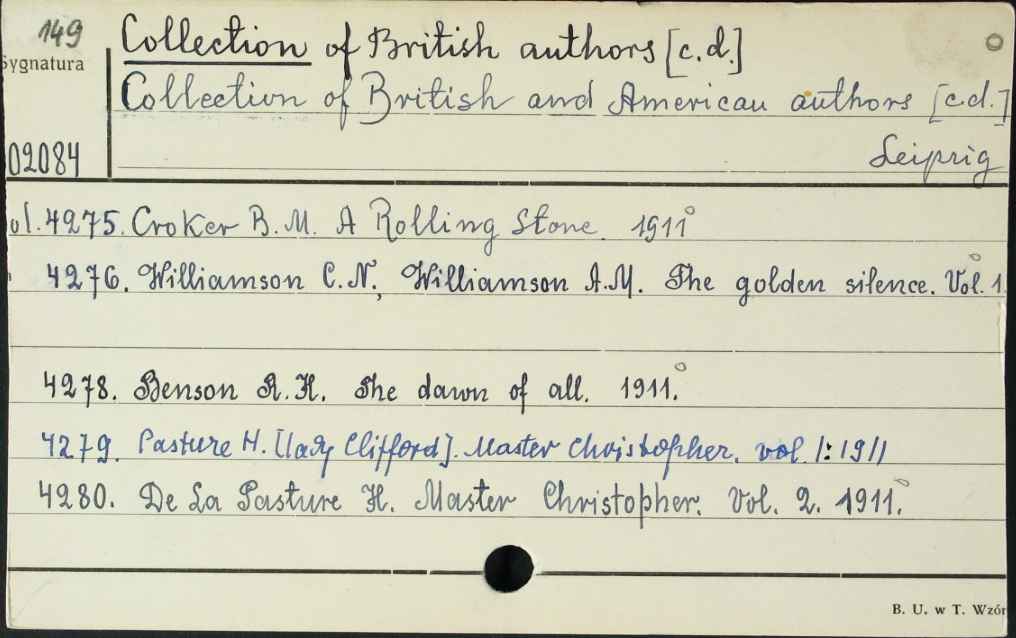 149
Sygnatura
02084
Collection of British authors [c.d.]
Collection of British and American authors [c.d.]
Leipzig
ol. 4275. Croker B. M. A Rolling Stone. 1911
4276. Williamson C. N., Williamson A. M. The golden silence. Vol. 1.
4278. Benson R. H. The dawn of all. 1911.
4279. Pasture H. [lady Clifford]. Master Christopher. vol. 1: 1911
4280. De La Pasture H. Master Christopher. Vol. 2. 1911.
B. U. w T. Wzór